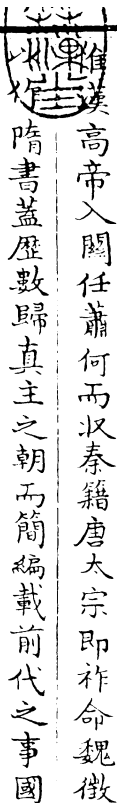 惟漢高帝入關任蕭何而収秦籍唐太宗即祚命魏徴
隋書蓋歴數歸真主之朝而簡編載前代之事國